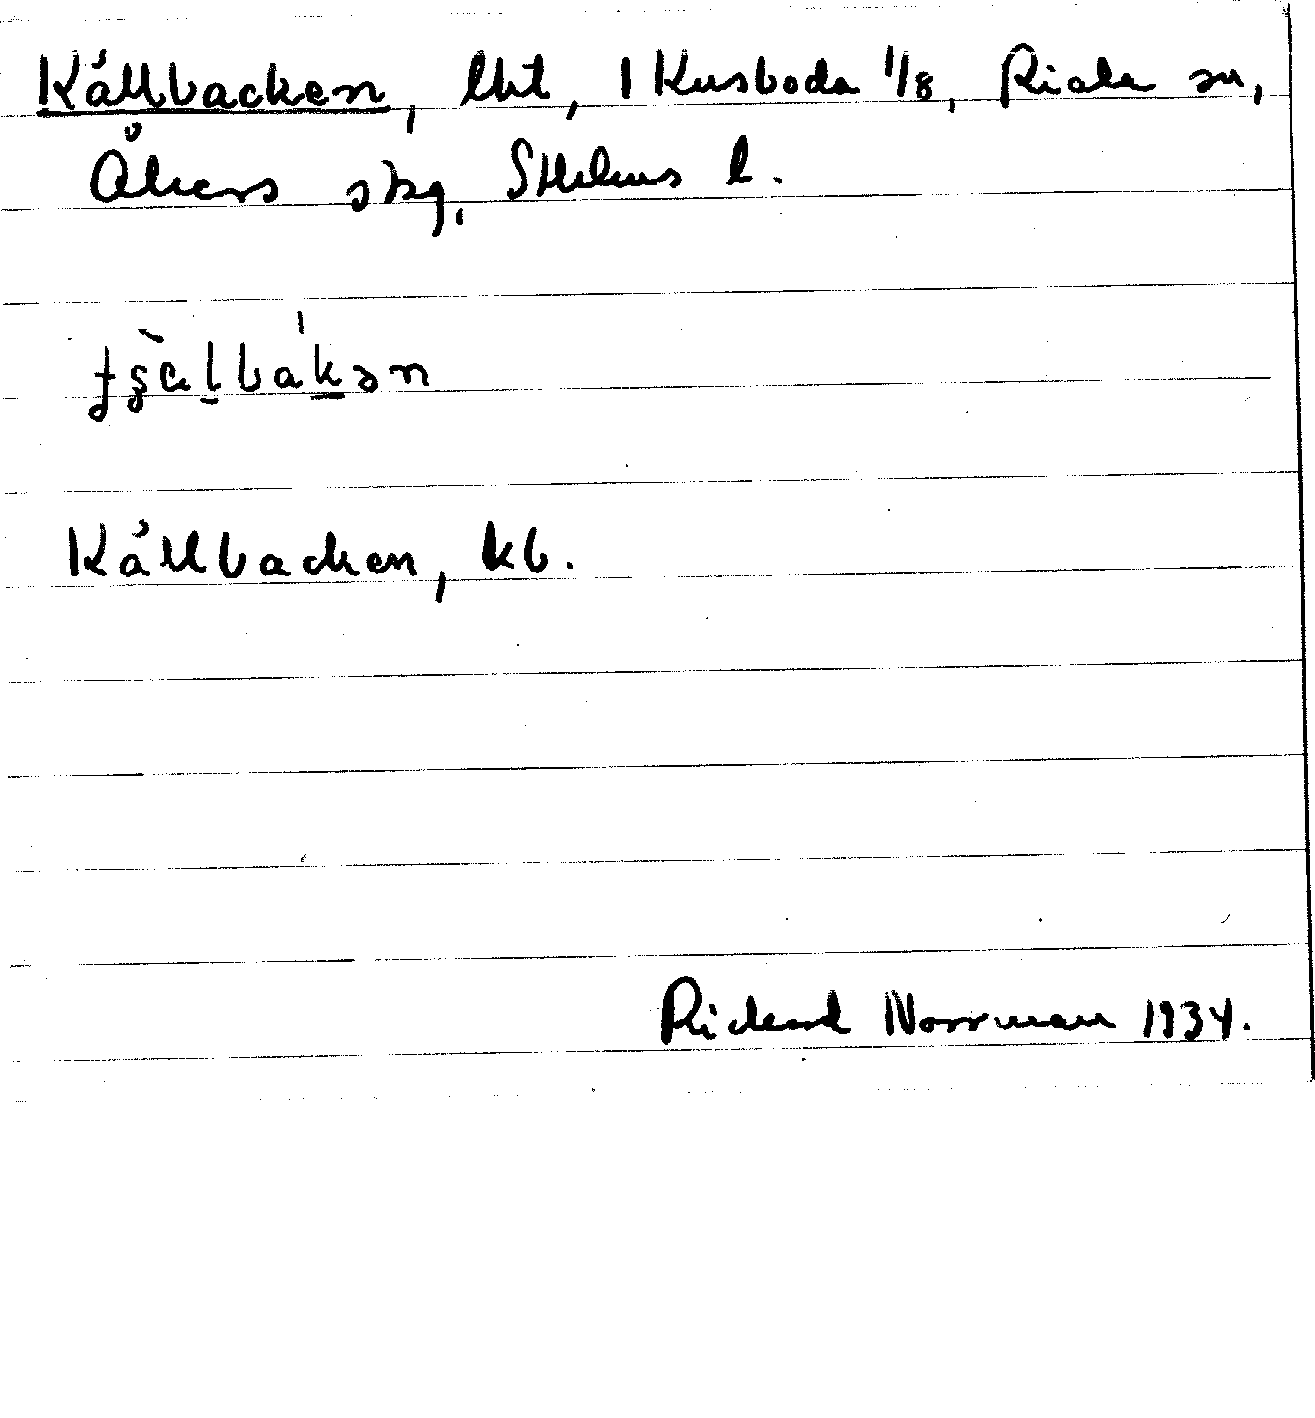 Källbacken, lht, 1 Kusboda 1/8, Riala sn,
Åkers skg, Sthlms l.
Källbacken, kb.
Rickard Norrman 1934.